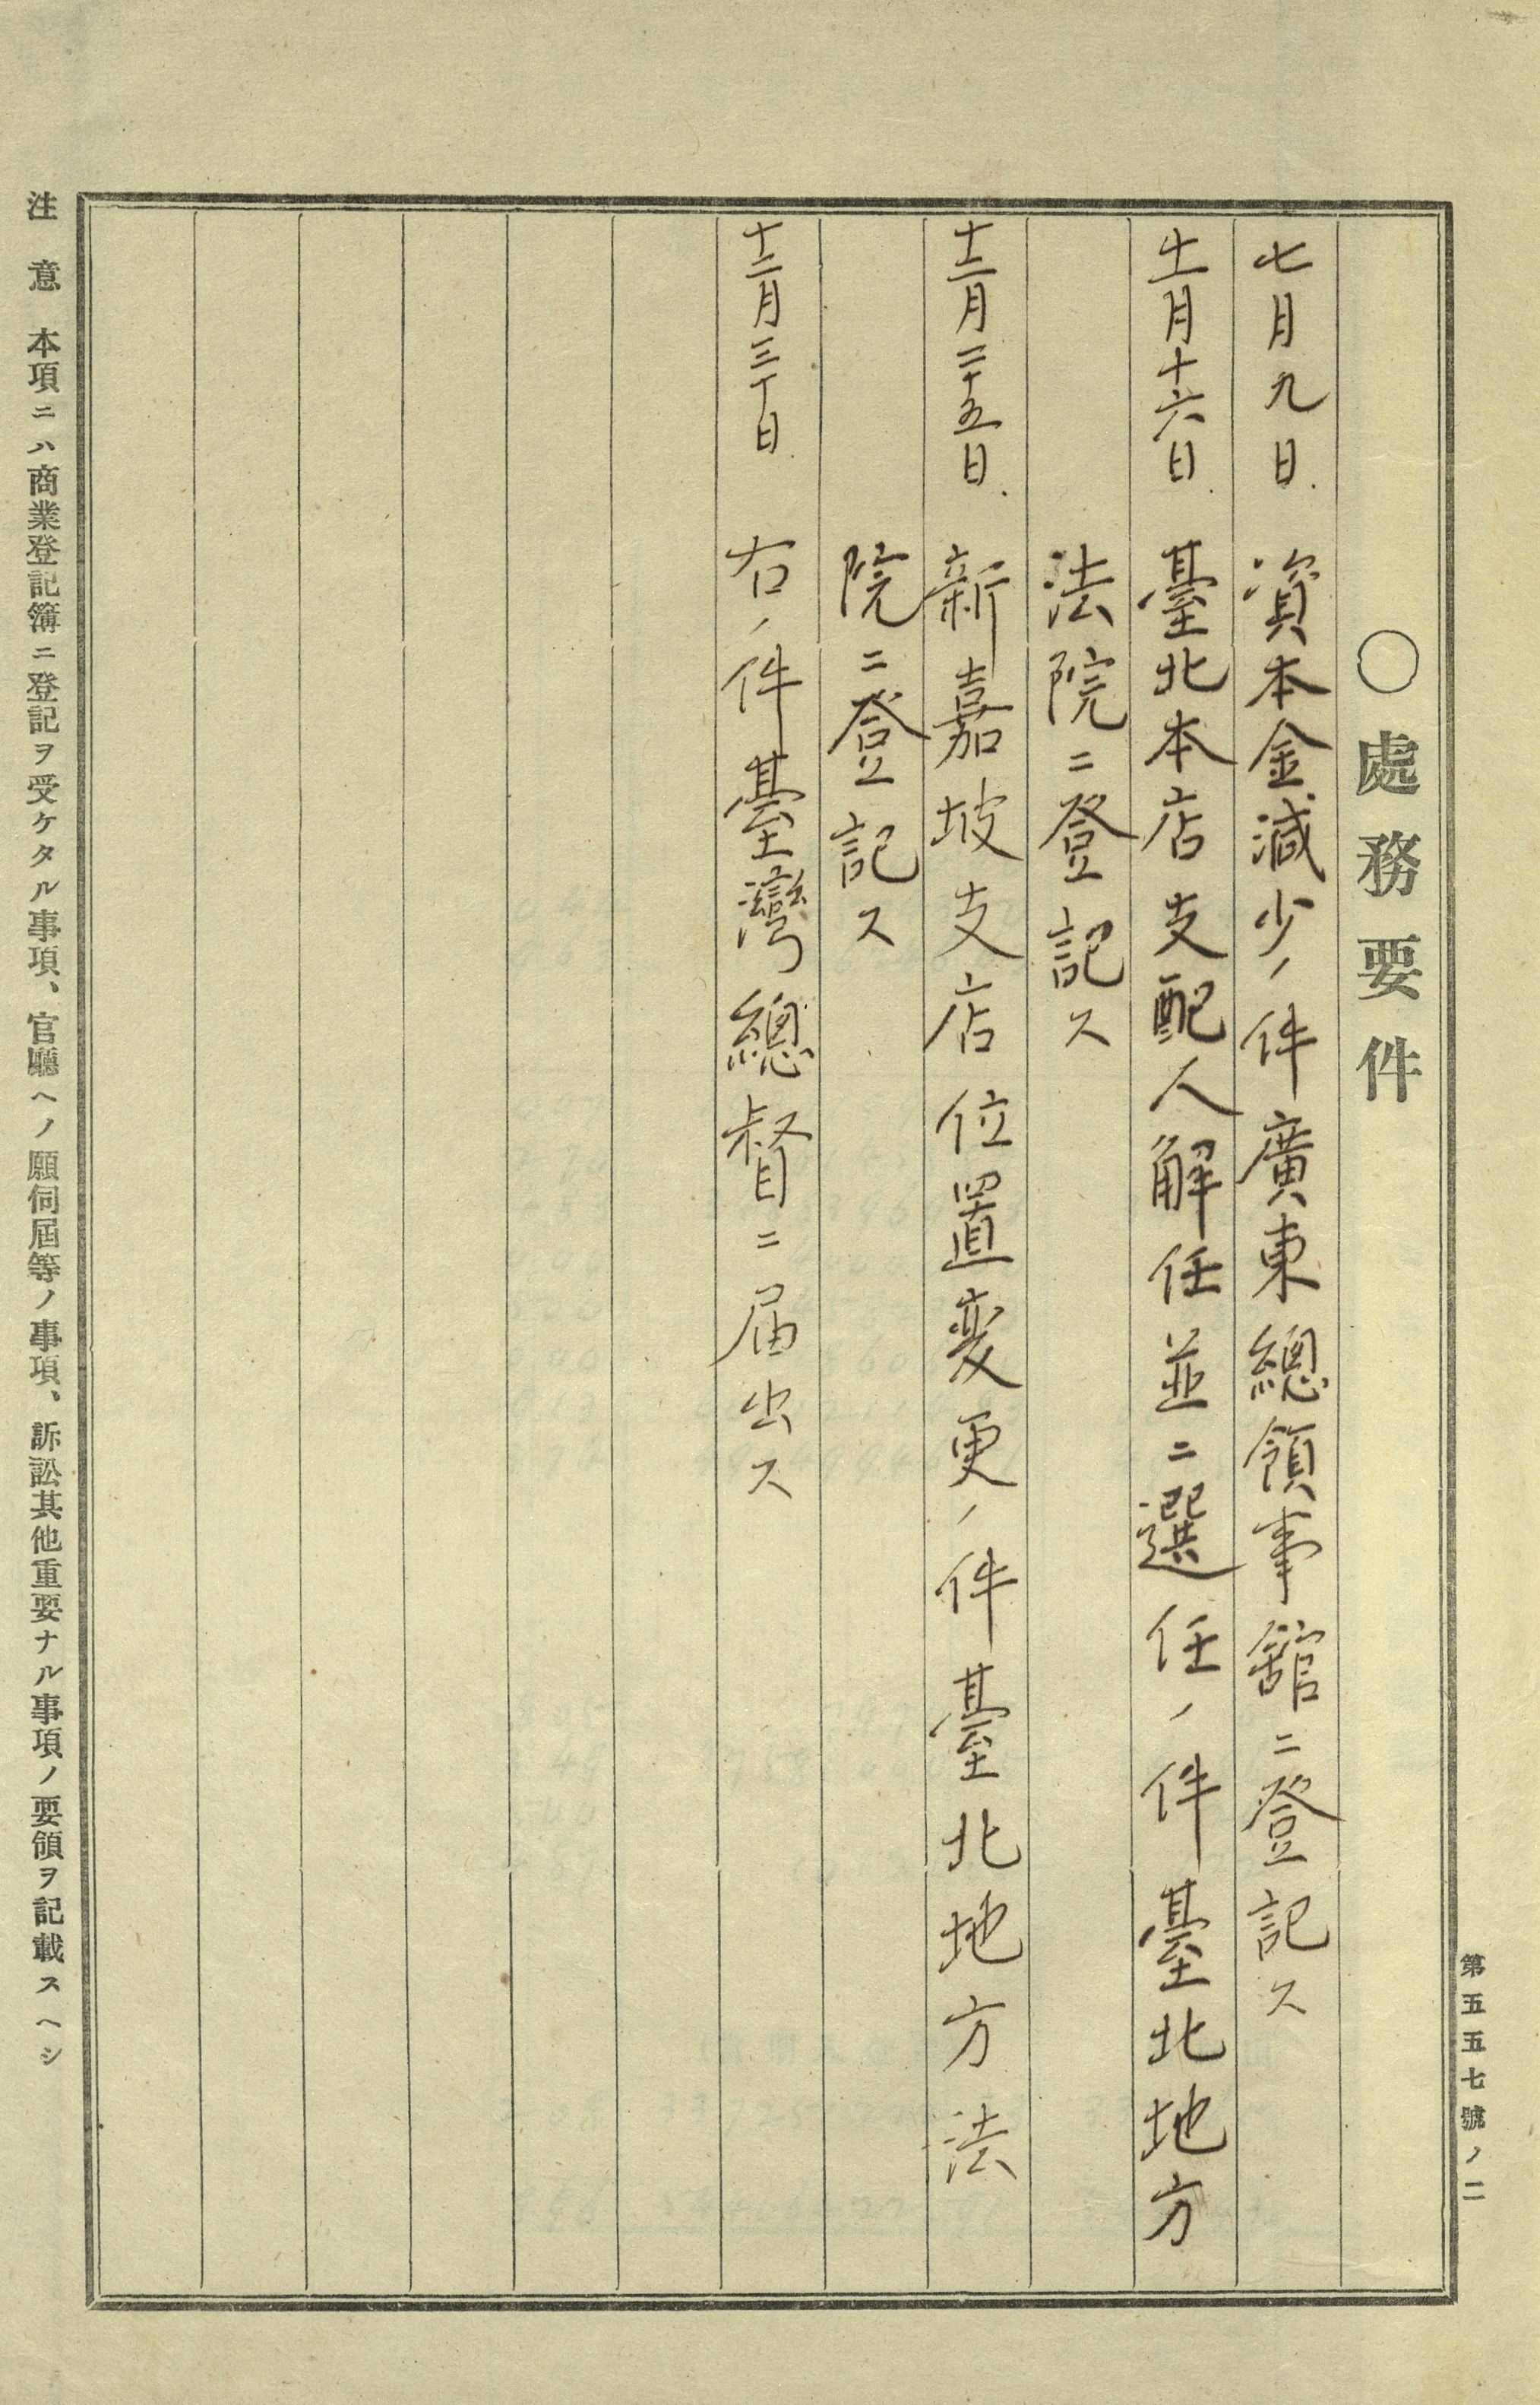 第五五七號ノ二
〇處務要件
七月九日 資本金減少ノ件廣東總領事舘ニ登記ス
十一月十六日 臺北本店支配人解任並ニ選任ノ件臺北地方
法院ニ登記ス
十二月二十五日 新嘉坡支店位置変更ノ件臺北地方法
院ニ登記ス
十二月三十日 右ノ件臺灣總督ニ届出ス
注意 本項ニハ商業登記簿ニ登記ヲ受ケタル事項、官廳ヘノ願伺屆等ノ事項、訴訟其他重要ナル事項ノ要領ヲ記載スヘシ